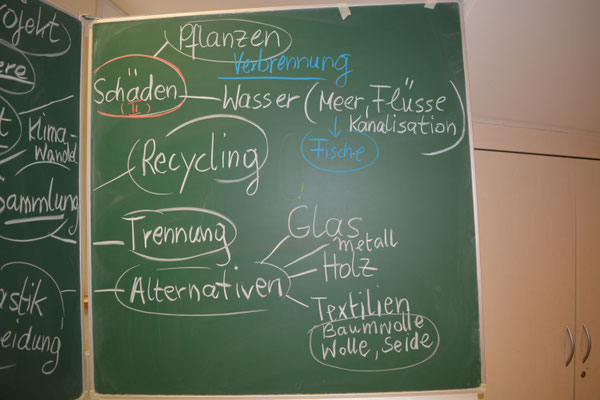 rojekt
ere
Klima-
Wandel
Sammlung
astik
eidung
Pflanzen
Verbrennung
Schäden
(II)
Wasser (Meer, Flüsse
Kanalisation)
Fische
Recycling
Trennung
Alternativen
Glas
Metall
Holz
Textilien
Baumwolle
Wolle, Seide